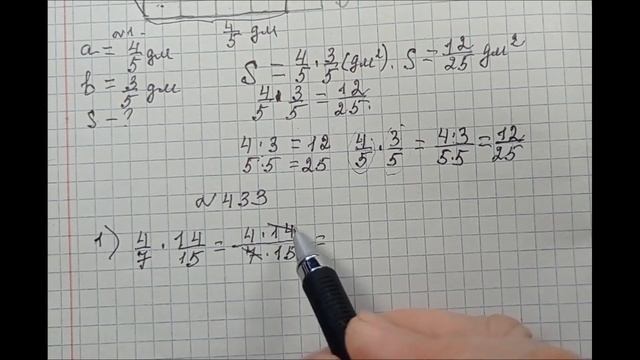 4/5 дм
№1.
a = 4/5 дм
b = 3/5 дм
S - ?
S = 4/5 · 3/5 (дм²). S = 12/25 дм²
4/5 · 3/5 = 12/25.
4·3 = 12
5·5 = 25
4/5 · 3/5 = 4·3/5·5 = 12/25
№433
1) 4/7 · 14/15 = 4·14/7·15 =